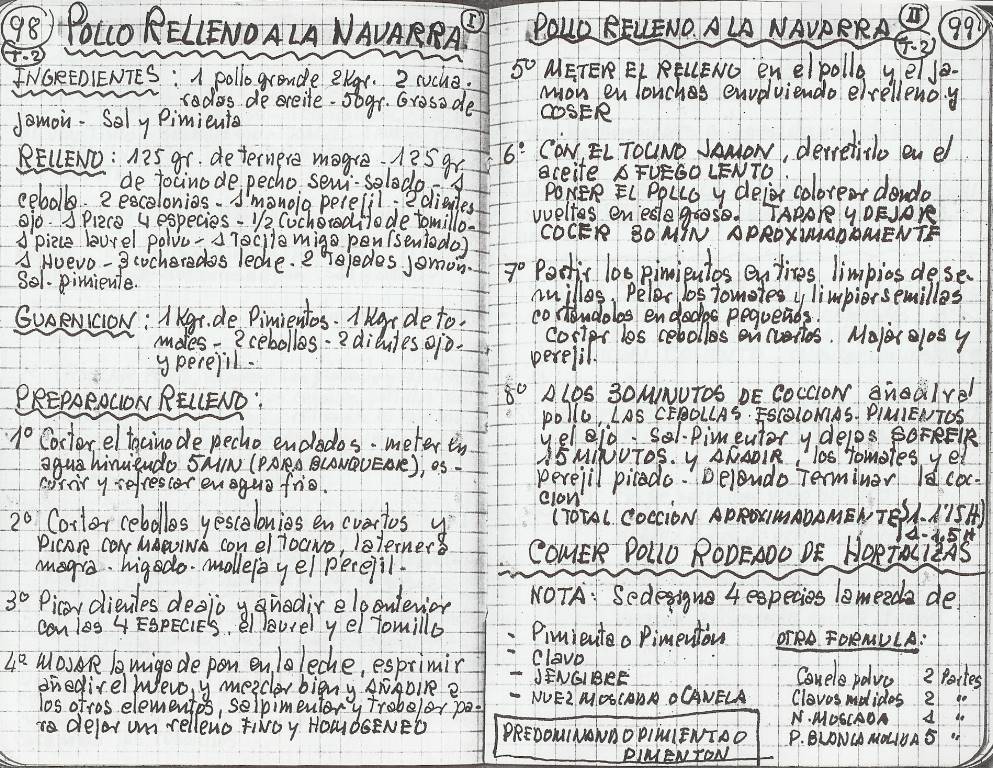 98
T-2
POLLO RELLENO A LA NAVARRA
I
INGREDIENTES : 1 pollo grande 2 Kgr. 2 cucha-
radas de aceite - 50 gr. Grasa de
jamon - Sal y Pimienta
RELLENO : 125 gr. de ternera magra - 125 gr
de tocino de pecho semi-salado - 1
cebolla - 2 escalonias - 1 manojo perejil - 2 dientes
ajo - 1 Pizca 4 especias - 1/2 cucharadita de tomillo -
1 pizca laurel polvo - 1 Tacita miga pan (sentado)
1 Huevo - 3 cucharadas leche - 2 Tajadas jamón -
Sal - pimienta.
GUARNICION : 1 Kgr. de Pimientos - 1 Kgr de to-
mates - 2 cebollas - 2 dientes ajo -
y perejil -
PREPARACION RELLENO :
1º Cortar el tocino de pecho en dados - meter en
agua hirviendo 5 MIN (PARA BLANQUEAR), es-
currir y refrescar en agua fria.
2º Cortar cebollas y escalonias en cuartos y
PICAR CON MAQUINA con el TOCINO, la ternera
magra - higado - molleja y el perejil -
3º Picar dientes de ajo y añadir a lo anterior
con las 4 ESPECIES, el laurel y el tomillo
4º MOJAR la miga de pan en la leche, esprimir
añadir el huevo, y mezclar bien y AÑADIR a
los otros elementos, salpimentar y Trabajar pa-
ra dejar un relleno FINO y HOMOGENEO
POLLO RELLENO A LA NAVARRA
II
T-2
99
5º METER EL RELLENO en el pollo y el ja-
mon en lonchas envolviendo el relleno y
COSER
6º CON EL TOCINO JAMON, derretirlo en el
aceite A FUEGO LENTO.
PONER EL POLLO y dejar colorear dando
vueltas en esta grasa. TAPAR Y DEJAR
COCER 30 MIN APROXIMADAMENTE
7º Partir los pimientos en tiras limpios de se-
millas. Pelar los tomates y limpiar semillas
cortandolos en dados pequeños.
Cortar las cebollas en cuartos. Majar ajos y
perejil.
8º A LOS 30 MINUTOS DE COCCION añadir al
pollo, LAS CEBOLLAS - ESCALONIAS - PIMIENTOS
y el ajo - Sal-Pimentar y dejar SOFREIR
15 MINUTOS. y AÑADIR, los tomates y el
perejil picado - Dejando Terminar la coc-
cion
(TOTAL COCCION APROXIMADAMENTE 1-1'15 H)
1-1,5 H
COMER POLLO RODEADO DE HORTALIZAS
NOTA : Se designa 4 especias la mezcla de
- Pimienta o Pimentón
- Clavo
- JENGIBRE
- NUEZ MOSCADA o CANELA
PREDOMINANDO PIMIENTA O
PIMENTON
OTRA FORMULA :
Canela polvo 2 Partes
Clavos molidos 2 "
N. MOSCADA 1 "
P. BLANCA MOLIDA 5 "